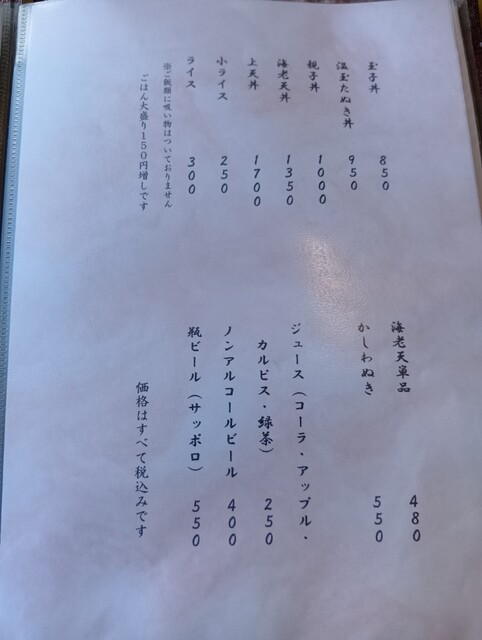 玉子丼 850
温玉たぬき丼 950
親子丼 1000
海老天丼 1350
上天丼 1700
小ライス 250
ライス 300
※ご飯類に吸い物はついておりません
ごはん大盛り150円増しです
海老天単品 480
かしわぬき 550
ジュース（コーラ・アップル・
カルピス・緑茶） 250
ノンアルコールビール 400
瓶ビール（サッポロ） 550
価格はすべて税込みです